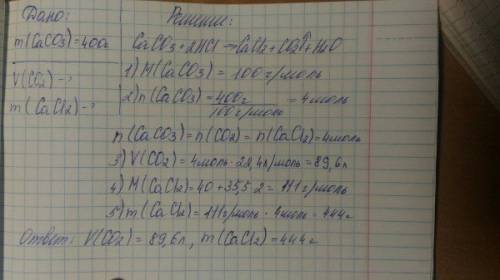 Дано:
Решение:
m(CaCO3)=400г
V(CO2)-?
m(CaCl2)-?
CaCO3+2HCl→CaCl2+CO2↑+H2O
1) M(CaCO3)=100г/моль
2) n(CaCO3)=400г/100г/моль=4моль
n(CaCO3)=n(CO2)=n(CaCl2)=4моль
3) V(CO2)=4моль·22,4л/моль=89,6л
4) M(CaCl2)=40+35,5·2=111г/моль
5) m(CaCl2)=111г/моль·4моль=444г
Ответ: V(CO2)=89,6л, m(CaCl2)=444г